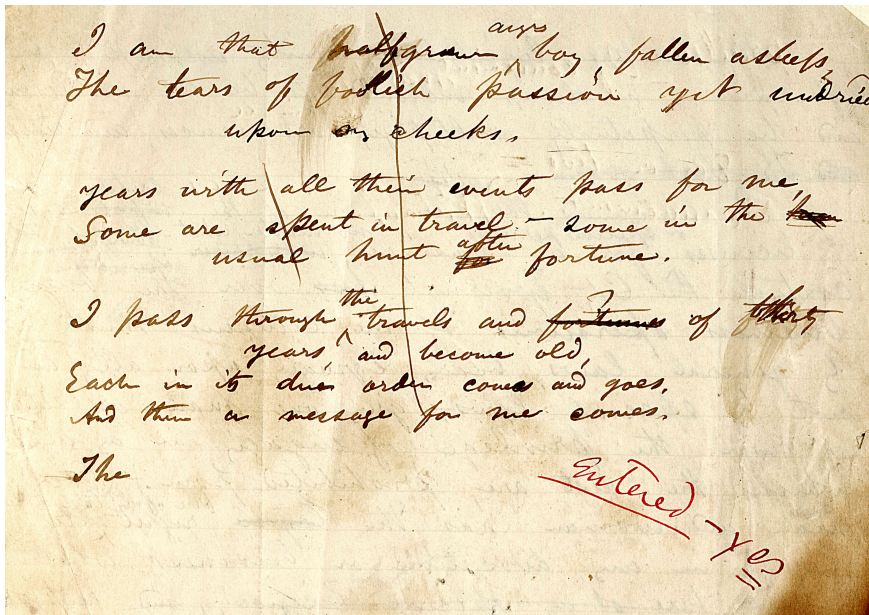 I am that halfgrown angry boy, fallen asleep,
The tears of foolish passion yet undried
upon my cheeks.
Years with all their events pass for me,
Some are spent in travel – some in the
usual hunt for after fortune.
I pass through the travels and fortunes ? of thirty
years, and become old,
Each in its due order comes and goes,
And then a message for me comes.
The
Entered – Yes